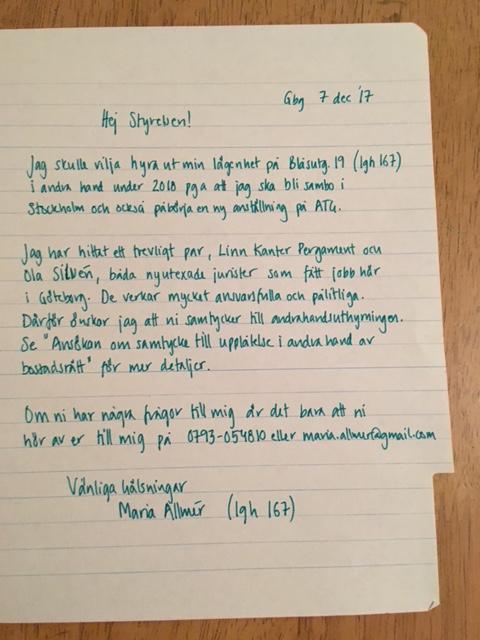 Gbg 7 dec '17
Hej Styrelsen!
Jag skulle vilja hyra ut min lägenhet på Blåsutg. 19 (lgh 167)
i andra hand under 2018 pga att jag ska bli sambo i
Stockholm och också påbörja en ny anställning på ATG.
Jag har hittat ett trevligt par, Linn Kanter Pergament och
Ola Silvén, båda nyutexade jurister som fått jobb här
i Göteborg. De verkar mycket ansvarsfulla och pålitliga.
Därför önskar jag att ni samtycker till andrahandsuthyrningen.
Se "Ansökan om samtycke till upplåtelse i andra hand av
bostadsrätt" för mer detaljer.
Om ni har några frågor till mig är det bara att ni
hör av er till mig på 0793-054810 eller maria.allmer@gmail.com
Vänliga hälsningar
Maria Allmér (lgh 167)